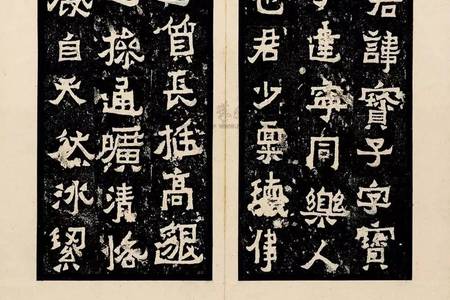 君諱寶子字寶
建寧同樂人
也君少稟瓌偉
質長挺高邈
操通曠清恪
發自天然冰絜